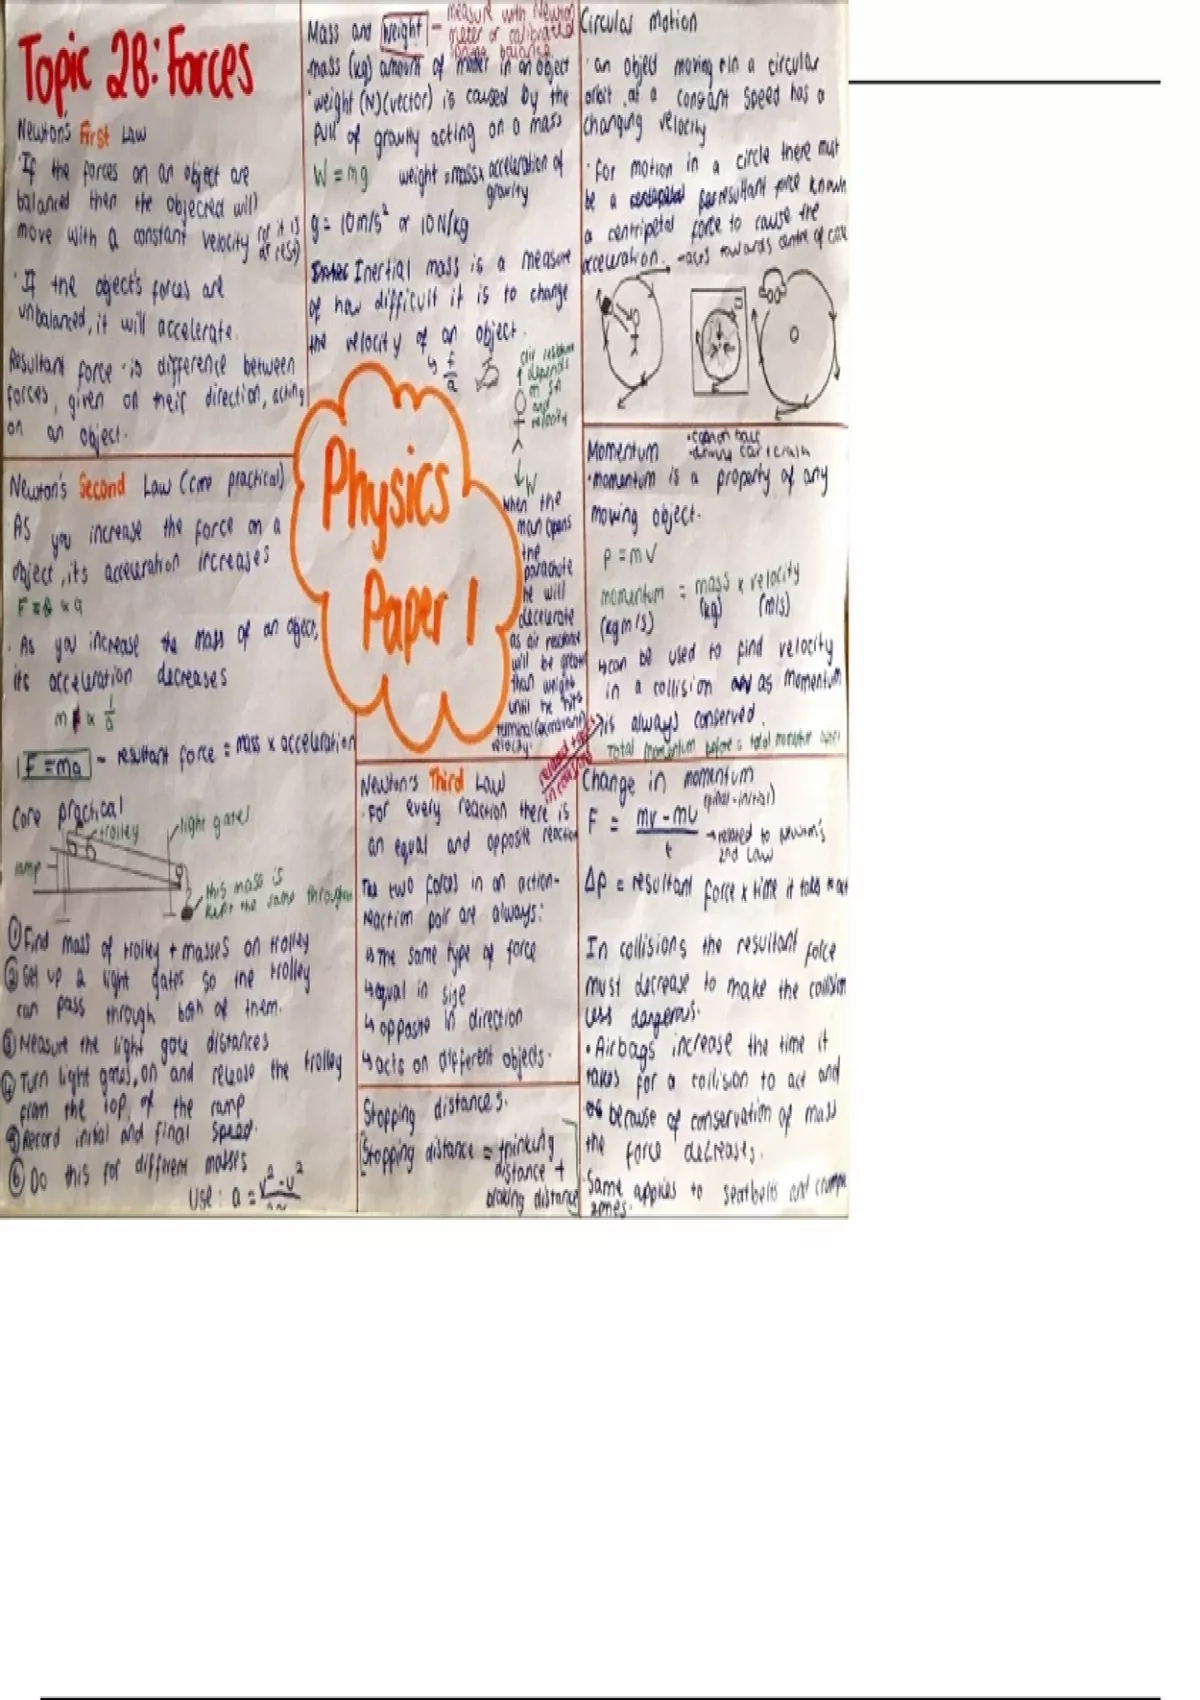 Topic 2B: Forces
Newton's First Law
· If the forces on an object are
balanced then the objecred will
move with a constant velocity (or it is
at rest)
· If the object's forces are
unbalanced, it will accelerate.
Resultant force · is difference between
forces, given on their direction, acting
on an object.
Newton's Second Law (core practical)
· AS you increase the force on a
object, its acceleration increases
· As you increase the mass of an object,
its acceleration decreases
F = ma - resultant force = mass x acceleration
Core practical
trolley
light gates
ramp
this mass is
kept the same
① Find mass of trolley + masses on trolley
② Set up 2 light gates so the trolley
can pass through both of them.
③ Measure the light gate distances
④ Turn light gates, on and release the trolley
from the top of the ramp
⑤ Record initial and final speed.
⑥ Do this for different masses
Use: a =
Mass and Weight - measure with Newton
meter or calibrated
spring balance
· mass (kg) amount of matter in an object
· weight (N) (vector) is caused by the
pull of gravity acting on a mass
W = mg weight = mass x acceleration of
gravity
g = 10m/s² or 10N/kg
Inertial mass is a measure
of how difficult it is to change
the velocity of an object.
↳ f/a
air
depends
on SA
and
velocity
W
When the
man opens
the
parachute
he will
decelerate
as air
will be greater
than weight
until he hits
terminal (constant)
velocity.
Physics
Paper 1
Newton's Third Law
· For every reaction there is
an equal and opposite reaction
The two forces in an action-
reaction pair are always:
↳ The same type of force
↳ equal in size
↳ opposite in direction
↳ acts on different objects.
Stopping distances.
Stopping distance = thinking
distance +
braking distance
Circular motion
· an object moving in a circular
orbit at a constant speed has a
changing velocity
· For motion in a circle there must
be a resultant force known
a centripetal force to cause the
acceleration. - acts towards centre of
Momentum
· cannon ball
· momentum is a property of any
moving object.
P = mv
momentum = mass x velocity
(kgm/s) (kg) (m/s)
↳ can be used to find velocity
in a collision as momentum
is always conserved.
Total momentum before = total momentum
Change in momentum
(final - initial)
F = mv - mu / t
→ related to Newton's
2nd Law
Δp = resultant force x time it
In collisions the resultant force
must decrease to make the collision
less dangerous.
· Airbags increase the time it
takes for a collision to act and
because of conservation of mass
the force decreases.
· Same applies to seatbelts and crumple
zones.